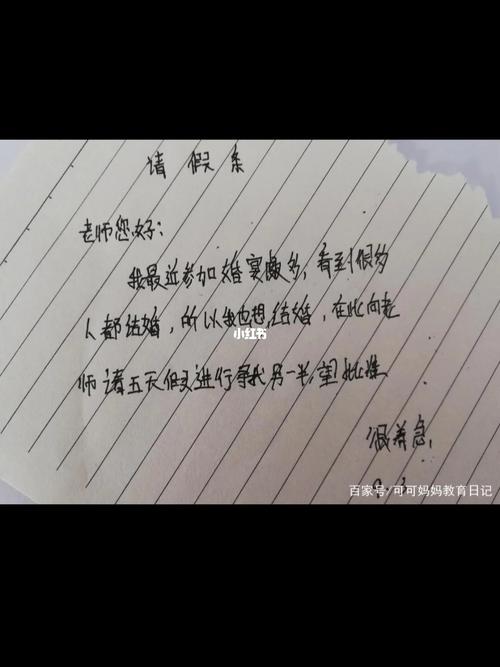 请假条
老师您好:
我最近参加婚宴颇多,看到很多
人都结婚,所以我也想结婚,在此向老
师请五天假进行寻找另一半,望批准
很着急,
小红书
百家号/可可妈妈教育日记